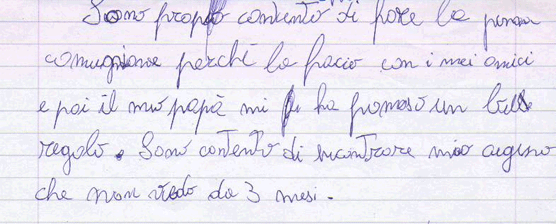 Sono propio contento di fare la prima
comugnione perchè la faccio con i miei amici
e poi il mio papà mi ha promeso un bel
regalo. Sono contento di incontrare mio cugino
che non vedo da 3 mesi.